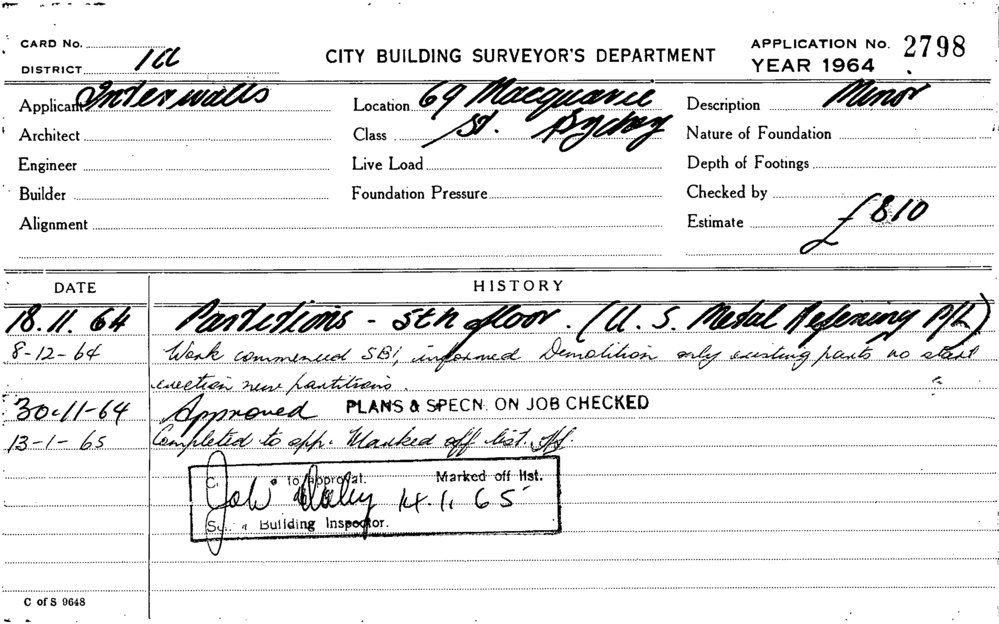 CARD No.
DISTRICT 1a
CITY BUILDING SURVEYOR'S DEPARTMENT
APPLICATION No. 2798
YEAR 1964
Applicant Interwalls
Location 69 Macquarie
Description Minor
Architect
Class St. Sydney
Nature of Foundation
Engineer
Live Load
Depth of Footings
Builder
Foundation Pressure
Checked by
Alignment
Estimate £810
DATE
HISTORY
18.11.64 Partitions - 5th floor. (U.S. Metal Refening P/L)
8-12-64 Work commenced SBI, informed Demolition only existing parts no start
erection new partitions.
30-11-64 Approved PLANS & SPECN. ON JOB CHECKED
13-1-65 Completed to app. Marked off list.
to approval. Marked off list.
14.1.65
Building Inspector.
C of S 9648